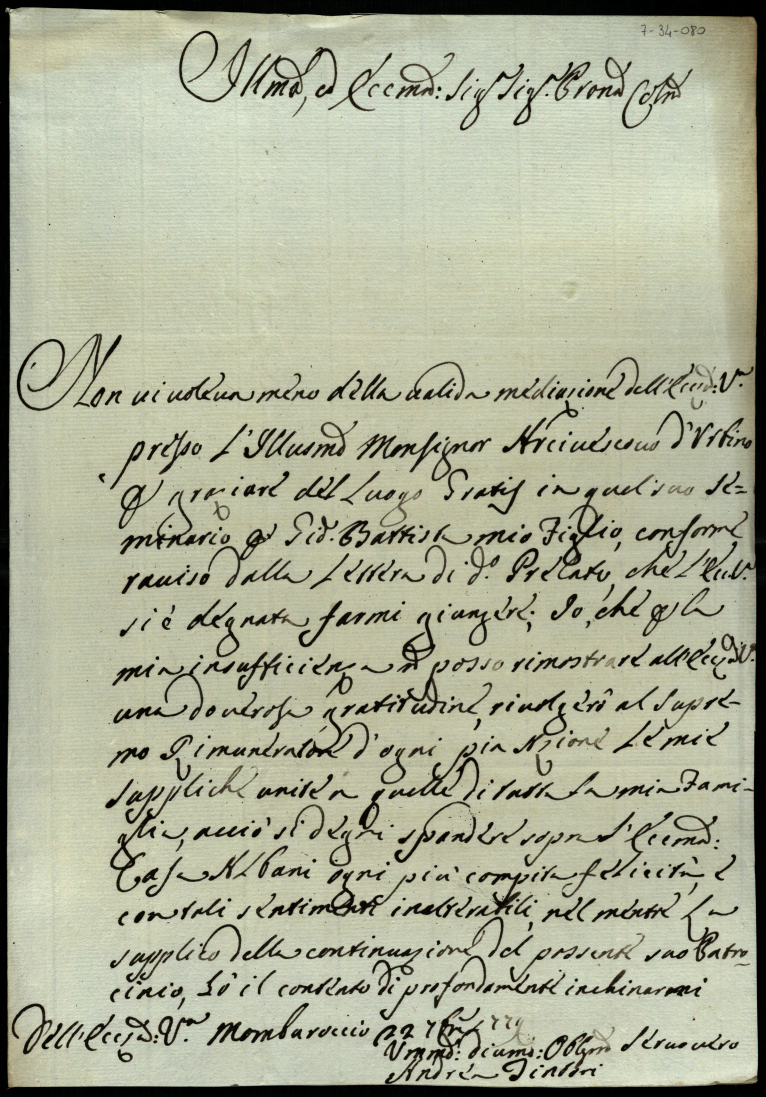 7-34-080
Illmo, ed Eccmo: Sigr Sigr. Prone Colmo
Non vi voleva meno della valida mediazione dell'Eccza: Va.
presso l'Illusmo Monsignor Arcivescovo d'Urbino
p graziare del Luogo Gratis in quel suo Se=
minario p Gio. Battista mio Figlio, conforme
raviso dalla Lettera di do. Prelato, che l'Ecc.Va.
si è degnata farmi giungere; Io, che p la
mia insufficienza ñ posso rimostrare all'Eccza Va.
una doverosa gratitudine, rivolgerò al Supre-
mo Rimuneratore d'ogni pia Azione le mie
suppliche unite a quelle di tutta la mia Fami-
glia, acciò si degni spandere sopra l'Eccma:
Casa Albani ogni più compita felicità, e
con tali sentimenti inalterabili, nel mentre La
supplico della continuazione del possente suo Patro-
cinio, hò il contento di profondamente inchinarmi
Dell'Eccza: Va. Mombaroccio 22 7bre 1779
Ummo: divmo: Obligmo Servo vero
Andrea Tintori